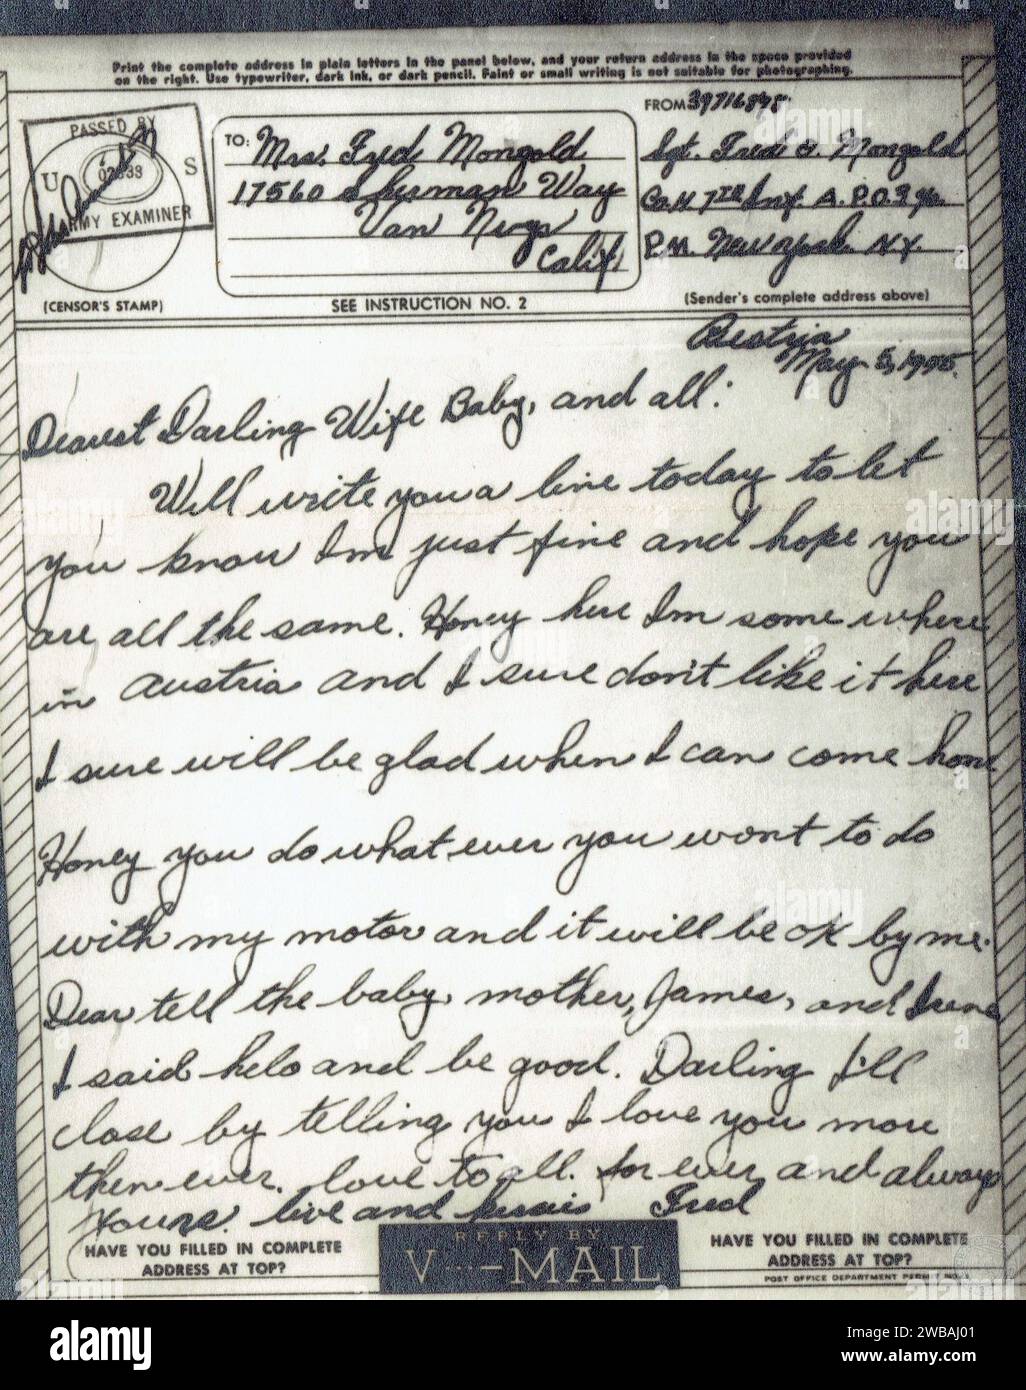 Print the complete address in plain letters in the panel below, and your return address in the space provided
on the right. Use typewriter, dark ink, or dark pencil. Faint or small writing is not suitable for photographing.
PASSED BY
U S
ARMY EXAMINER
(CENSOR'S STAMP)
TO: Mrs. Fred Mongold
17560 Sherman Way
Van Nuys
Calif
SEE INSTRUCTION NO. 2
FROM 39716848
Sgt. Fred G. Mongold
Co. H 7TH Inf. A.P.O. 3 %
P.M. New York NY
(Sender's complete address above)
Austria
May 5, 1945.
Dearest Darling Wife Baby, and all:
Will write you a line today to let
you know Im just fine and hope you
are all the same. Honey here Im some where
in Austria and I sure don't like it here
I sure will be glad when I can come home
Honey you do what ever you wont to do
with my motor and it will be OK by me.
Dear tell the baby, mother, James, and Irene
I said helo and be good. Darling I'll
close by telling you I love you more
then ever. love to all. for ever and always
Yours. and Fred
HAVE YOU FILLED IN COMPLETE
ADDRESS AT TOP?
REPLY BY
V···—MAIL
HAVE YOU FILLED IN COMPLETE
ADDRESS AT TOP?
POST OFFICE DEPARTMENT PERMIT NO.
alamy
Image ID: 2WBAJ01
www.alamy.com